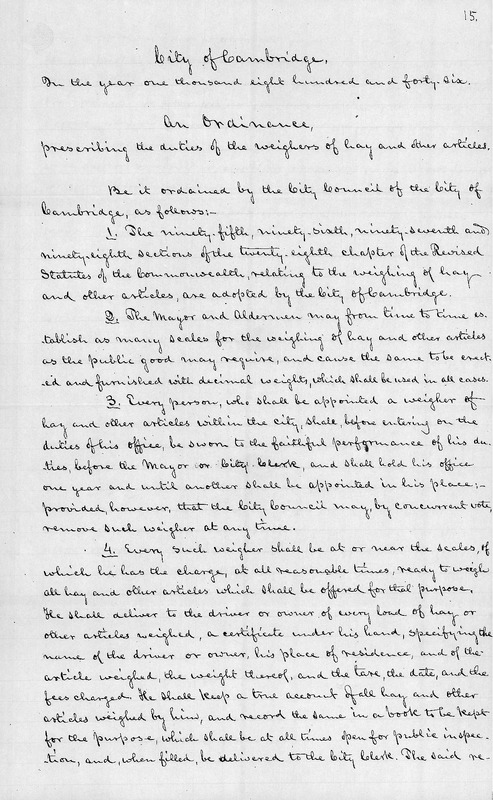 15.
City of Cambridge,
In the year one thousand eight hundred and forty-six.
An Ordinance,
prescribing the duties of the weighers of hay and other articles.
Be it ordained by the City Council of the City of
Cambridge, as follows:-
1. The ninety-fifth, ninety-sixth, ninety-seventh and
ninety-eighth sections of the twenty-eighth chapter of the Revised
Statutes of the Commonwealth, relating to the weighing of hay
and other articles, are adopted by the City of Cambridge.
2. The Mayor and Aldermen may from time to time es-
-tablish as many scales for the weighing of hay and other articles
as the public good may require, and cause the same to be erect-
-ed and furnished with decimal weights, which shall be used in all cases.
3. Every person, who shall be appointed a weigher of
hay and other articles within the city, shall, before entering on the
duties of his office, be sworn to the faithful performance of his du-
-ties, before the Mayor or City Clerk, and shall hold his office
one year and until another shall be appointed in his place;-
provided, however, that the City Council may, by concurrent vote,
remove such weigher at any time.
4. Every such weigher shall be at or near the scales, of
which he has the charge, at all reasonable times, ready to weigh
all hay and other articles which shall be offered for that purpose.
He shall deliver to the driver or owner of every load of hay or
other articles weighed, a certificate under his hand, specifying the
name of the driver or owner, his place of residence, and of the
article weighed, the weight thereof, and the tare, the date, and the
fees charged. He shall keep a true account of all hay and other
articles weighed by him, and record the same in a book to be kept
for the purpose, which shall be at all times open for public inspec-
-tion, and, when filled, be delivered to the City Clerk. The said re-